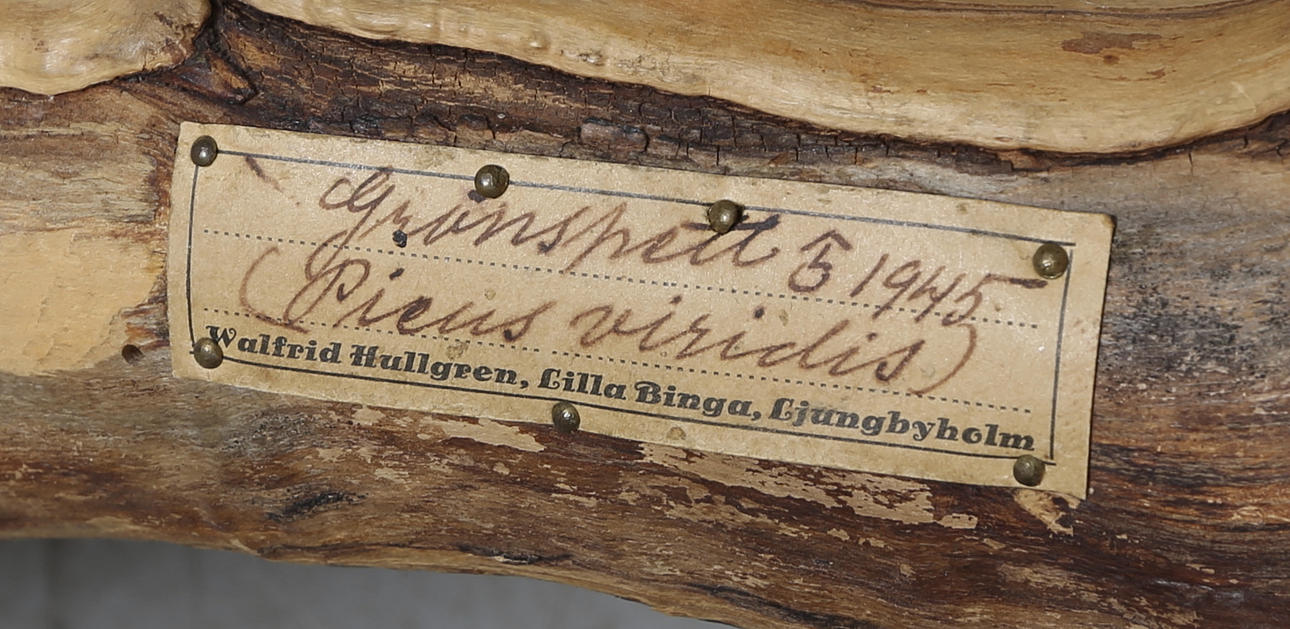 Grönspett 5 1945.
(Picus viridis)
Walfrid Hullgren, Lilla Binga, Ljungbyholm